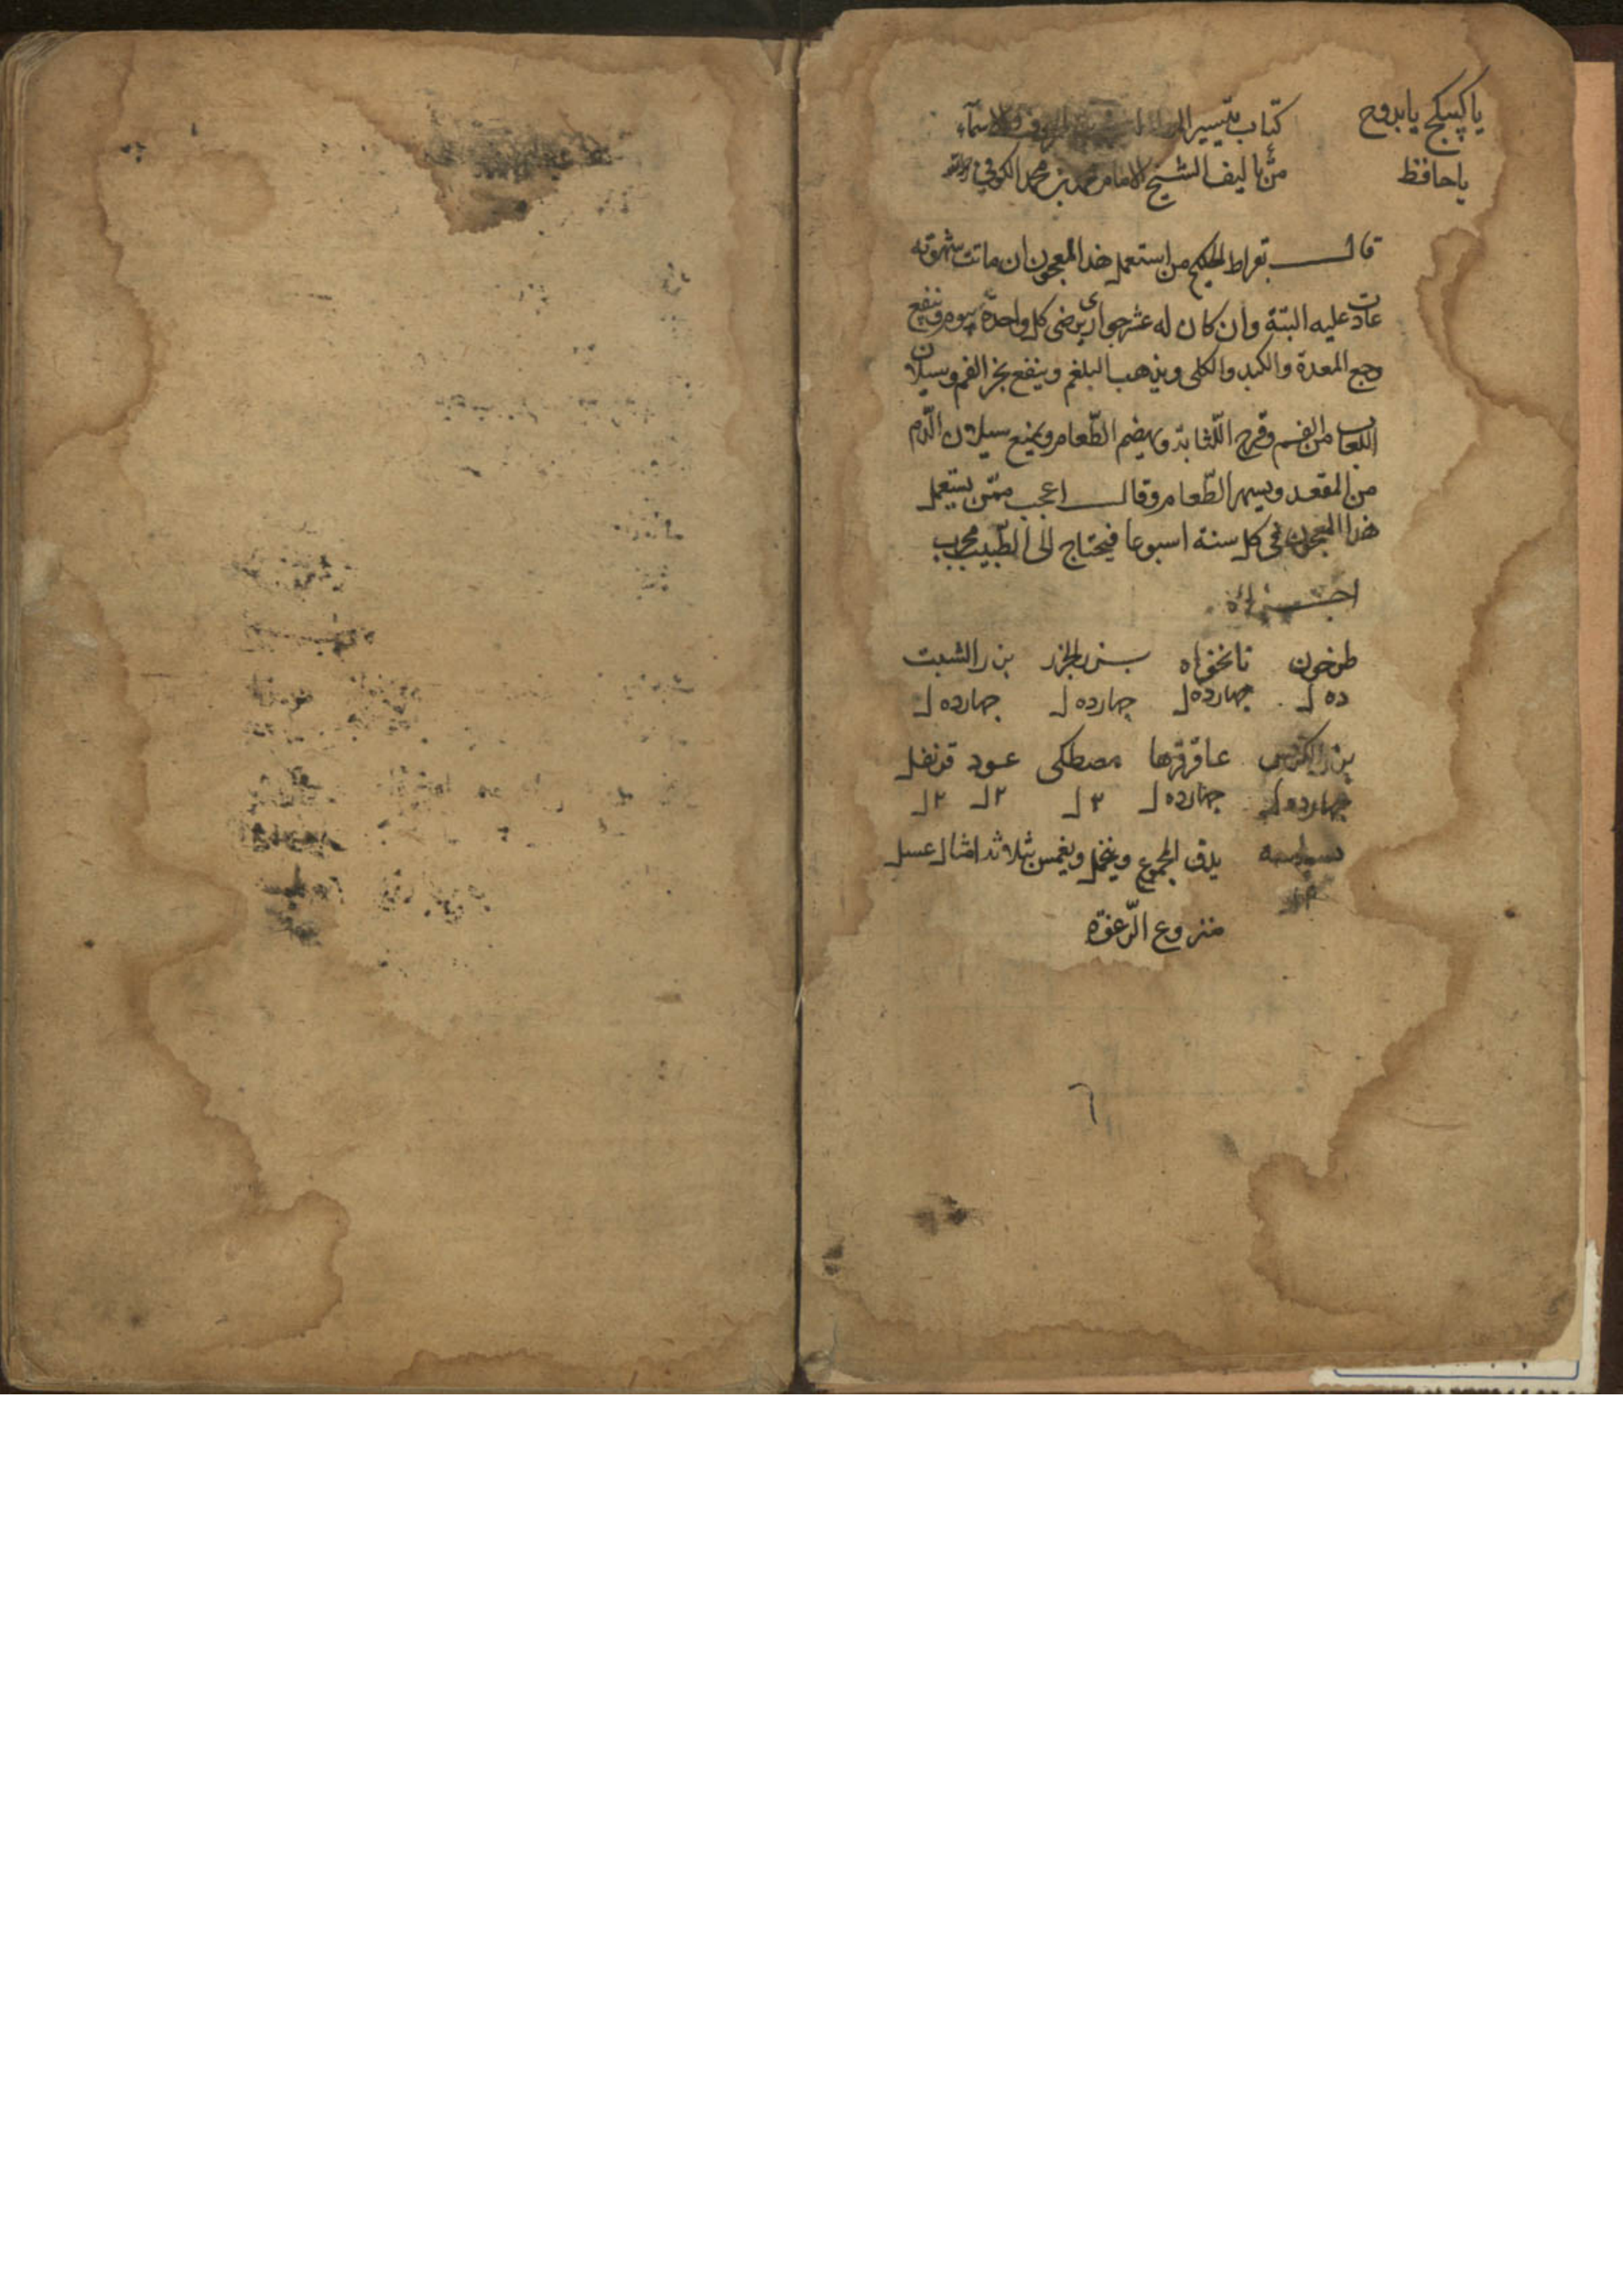 يا كبيكج يا بدوح
يا حافظ
كتاب تيسير والاسماء
من تاليف الشيخ الامام محمد بن محمد الكوفي
قال بقراط الحكيم من استعمل هذا المعجون ان ماتت شهوته
عادت عليه البتة وان كان له عشر جواري يرضى كل واحدة بيوم وينفع
وجع المعدة والكبد والكلى ويذهب البلغم وينفع بخر الفم وسيلان
اللعاب من الفم وقرح اللثا به ويهضم الطعام ويمنع سيلان الدم
من المقعد ويسهر الطعام وقال اعجب ممن يستعمل
هذا المعجون في كل سنة اسبوعا فيحتاج الى الطبيب مجرب
اجزاؤه
طرخون نانخواه بزر الجزر بزر الشبت
ده ل چهارده ل چهارده ل چهارده ل
بزر الكرفس عاقرقرها مصطكى عود قرنفل
چهارده ل چهارده ل ٢ ل ٢ ل ٢ ل
بسباسه يدق المجموع وينخل ويغمس بثلاثة امثال عسل
منزوع الرغوة